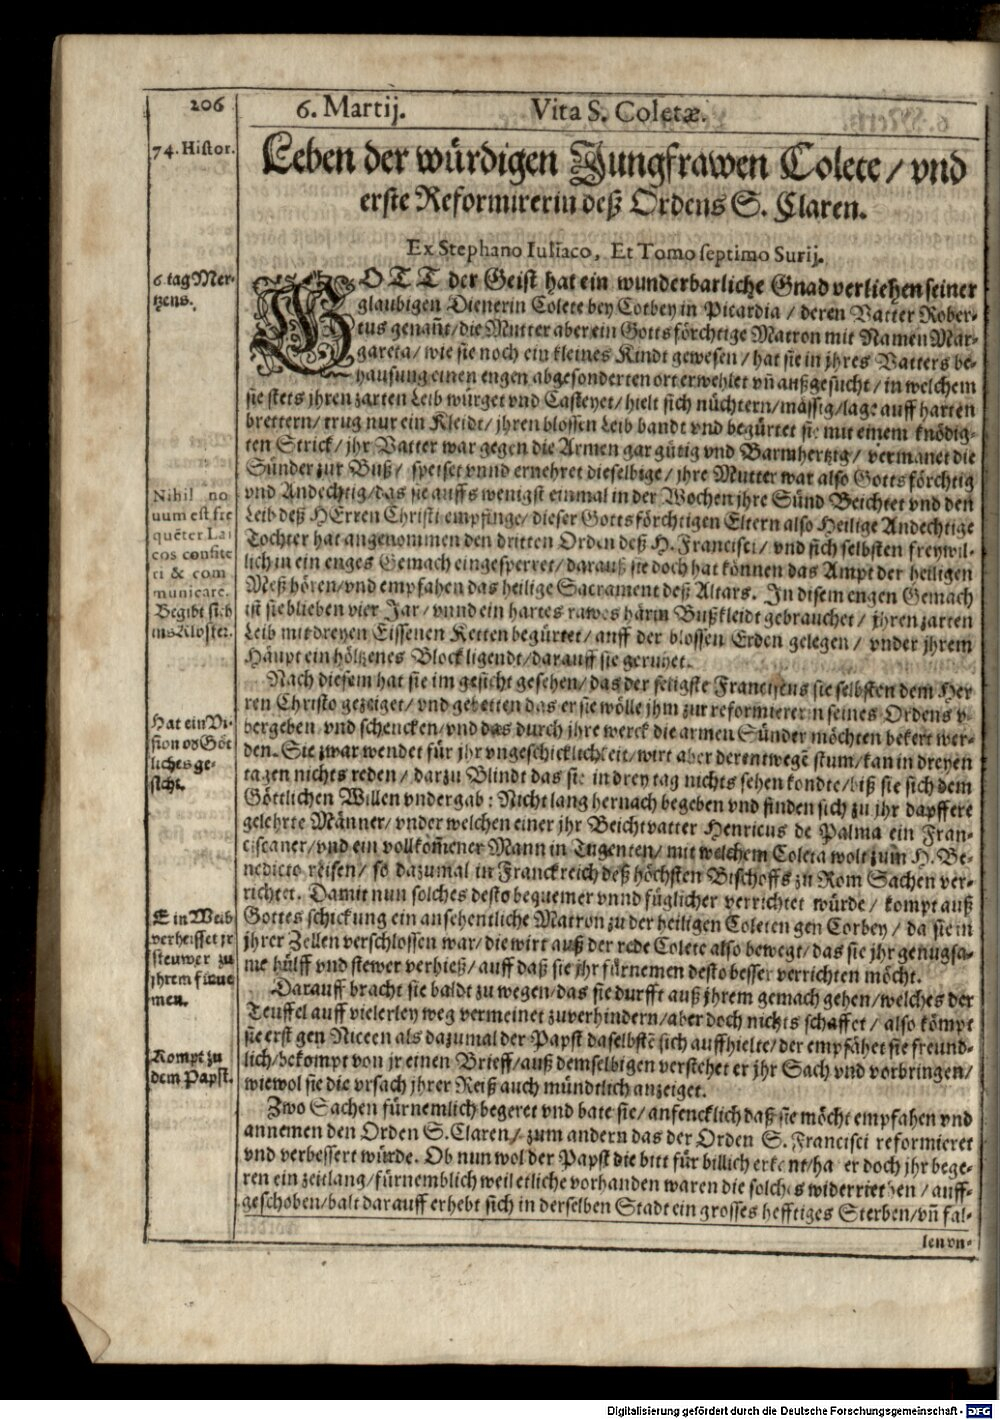 206
6. Martij.
Vita S. Coletæ.
74. Histor.
Leben der würdigen Jungfrawen Colete / vnd
erste Reformirerin deß Ordens S. Claren.
Ex Stephano Iuliaco, Et Tomo septimo Surij.
6 tag Mer-
tzens.
GOTT der Geist hat ein wunderbarliche Gnad verliehen seiner
glaubigen Dienerin Colete bey Corbey in Picardia / deren Vatter Rober-
tus genañt / die Mutter aber ein Gottsförchtige Matron mit Namen Mar-
gareta / wie sie noch ein kleines Kindt gewesen / hat sie in jhres Vatters be-
hausung einen engen abgesonderten ort erwehlet vñ außgesucht / in welchem
sie stets jhren zarten Leib würget vnd Casteyet / hielt sich nüchtern / mässig / lage auff harten
brettern / trug nur ein Kleidt / jhren blossen Leib bandt vnd begürtet sie mit einem knödig-
ten Strick / jhr Vatter war gegen die Armen gar gütig vnd Barmhertzig / vermanet die
Sünder zur Buß / speiset vnnd ernehret dieselbige / jhre Mutter war also Gottsförchtig
vnd Andechtig / das sie auffs wenigst einmal in der Wochen jhre Sünd Beichtet vnd den
Leib deß HErren Christi empfinge / dieser Gottsförchtigen Eltern also Heilige Andechtige
Tochter hat angenommen den dritten Orden deß H. Francisci / vnd sich selbsten freywil-
lich in ein enges Gemach eingesperret / darauß sie doch hat können das Ampt der heiligen
Meß hören / vnd empfahen das heilige Sacrament deß Altars. In disem engen Gemach
ist sie blieben vier Jar / vnnd ein hartes rawes härin Bußkleidt gebrauchet / jhren zarten
Leib mit dreyen Eissenen Ketten begürtet / auff der blossen Erden gelegen / vnder jhrem
Häupt ein höltzenes Block ligendt / darauff sie geruhet.
Nihil no
uum est fre
quēter Lai
cos confite
ri & com
municare.
Begibt sich
ins Kloster.
Nach diesem hat sie im gesicht gesehen / das der seligste Franciscus sie selbsten dem Her
ren Christo gezeiget / vnd gebetten das er sie wölle jhm zur reformiererin seines Ordens v-
bergeben vnd schencken / vnd das durch jhre werck die armen Sünder möchten bekert wer-
den. Sie zwar wendet für jhr vngeschicklichkeit / wirt aber derentwegē stum / kan in dreyen
tagen nichts reden / darzu Blindt das sie in drey tag nichts sehen kondte / biß sie sich dem
Göttlichen Willen vndergab : Nicht lang hernach begeben vnd finden sich zu jhr dapffere
gelehrte Männer / vnder welchen einer jhr Beichtvatter Henricus de Palma ein Fran-
ciscaner / vnd ein vollkom̃ener Mann in Tugenten / mit welchem Coleta wolt zum H. Be-
nedicto reisen / so dazumal in Franckreich deß höchsten Bischoffs zu Rom Sachen ver-
richtet. Damit nun solches desto bequemer vnnd füglicher verrichtet würde / kompt auß
Gottes schickung ein ansehentliche Matron zu der heiligen Coleten gen Corbey / da sie in
jhrer Zellen verschlossen war / die wirt auß der rede Colete also bewegt / das sie jhr genugsa-
me hülff vnd stewer verhieß / auff daß sie jhr fürnemen desto besser verrichten möcht.
Hat ein Vi-
sion oð Göt
liches ge-
sicht.
Ein Weib
verheisset jr
steuwer zu
jhrem fürne
men.
Darauff bracht sie baldt zu wegen / das sie durfft auß jhrem gemach gehen / welches der
Teuffel auff vielerley weg vermeinet zuverhindern / aber doch nichts schaffet / also kömpt
sie erst gen Niceen als dazumal der Papst daselbstē sich auffhielte / der empfähet sie freund-
lich / bekompt von jr einen Brieff / auß demselbigen verstehet er jhr Sach vnd vorbringen /
wiewol sie die vrsach jhrer Reiß auch mündtlich anzeiget.
Kompt zu
dem Papst.
Zwo Sachen fürnemlich begeret vnd bate sie / anfencklich daß sie möcht empfahen vnd
annemen den Orden S. Claren / zum andern das der Orden S. Francisci reformieret
vnd verbessert würde. Ob nun wol der Papst die bitt für billich erkent / hat er doch jhr bege-
ren ein zeitlang / fürnemblich weil etliche vorhanden waren die solches widerriethen / auff-
geschoben / balt darauff erhebt sich in derselben Stadt ein grosses hefftiges Sterben / vñ fal-
len vn-
Digitalisierung gefördert durch die Deutsche Forschungsgemeinschaft - DFG